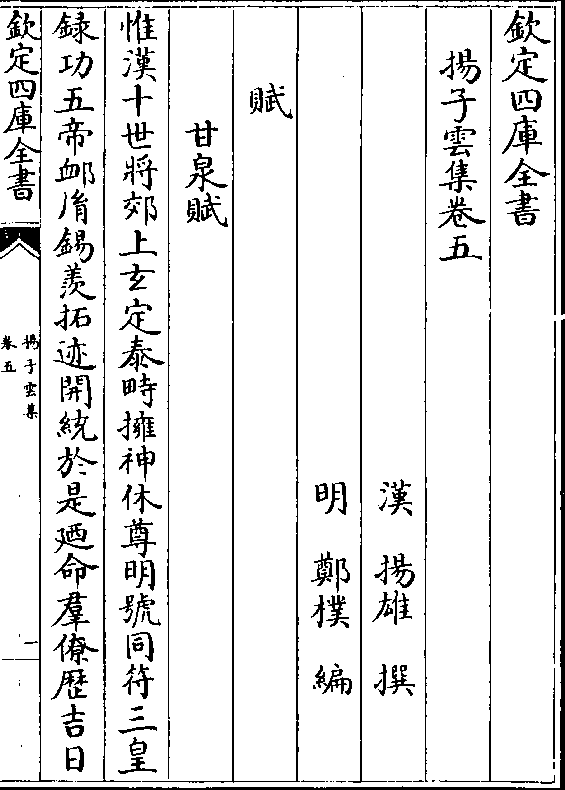 欽定四庫全書
揚子雲集卷五
漢 揚雄 撰
明 鄭樸 編
賦
甘泉賦
惟漢十世將郊上玄定泰畤擁神休尊明號同符三皇
録功五帝衈胤錫羨拓迹開統於是廼命羣僚歴吉日
欽定四庫全書
揚子雲集
卷五
一